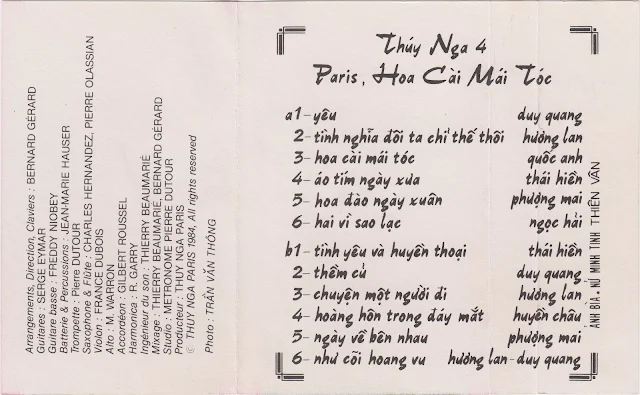 Arrangements, Direction, Claviers : BERNARD GÉRARD
Guitares : SERGE EYMAR
Guitare basse : FREDDY NIOBEY
Batterie & Percussions : JEAN-MARIE HAUSER
Trompette : Pierre DUTOUR
Saxophone & Flûte : CHARLES HERNANDEZ, PIERRE OLASSIAN
Violon : FRANCE DUBOIS
Alto : M. WARRON
Accordéon : GILBERT ROUSSEL
Harmonica : R. GARRY
Ingénieur du son : THIERRY BEAUMARIÉ
Mixage : THIERRY BEAUMARIÉ, BERNARD GÉRARD
Studio : METRONOME PIERRE DUTOUR
Producteur : THUY NGA PARIS
© THUY NGA PARIS 1984, All rights reserved
Photo : TRẦN VĂN THÔNG
Thúy Nga 4
Paris, Hoa Cài Mái Tóc
a1-yêu duy quang
2-tình nghĩa đôi ta chỉ thế thôi hương lan
3-hoa cài mái tóc quốc anh
4-áo tím ngày xưa thái hiền
5-hoa đào ngày xuân phượng mai
6-hai vì sao lạc ngọc hải
b1-tình yêu và huyền thoại thái hiền
2-thềm cũ duy quang
3-chuyện một người đi hương lan
4-hoàng hôn trong đáy mắt huyền châu
5-ngày về bên nhau phượng mai
6-như cõi hoang vu hương lan-duy quang
ẢNH BÌA: NỮ MINH TINH THIÊN VÂN